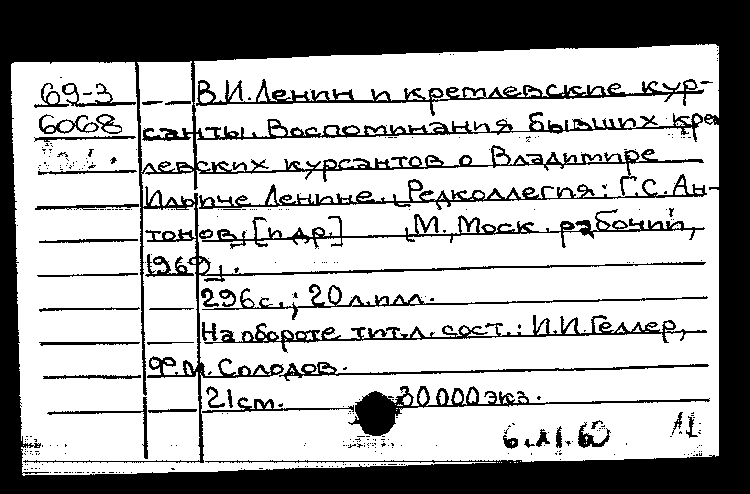 69-3 В.И.Ленин и кремлевские кур-
6068 санты. Воспоминания бывших крем
левских курсантов о Владимире
Ильиче Ленине. Редколлегия: Г.С. Ан-
тонов, [и др.] М., Моск. рабочий,
1969.
296 с.; 20 л. илл.
На обороте тит. л. сост.: И.И. Геллер,
Ф.М. Солодов.
21 см. 30 000 экз.